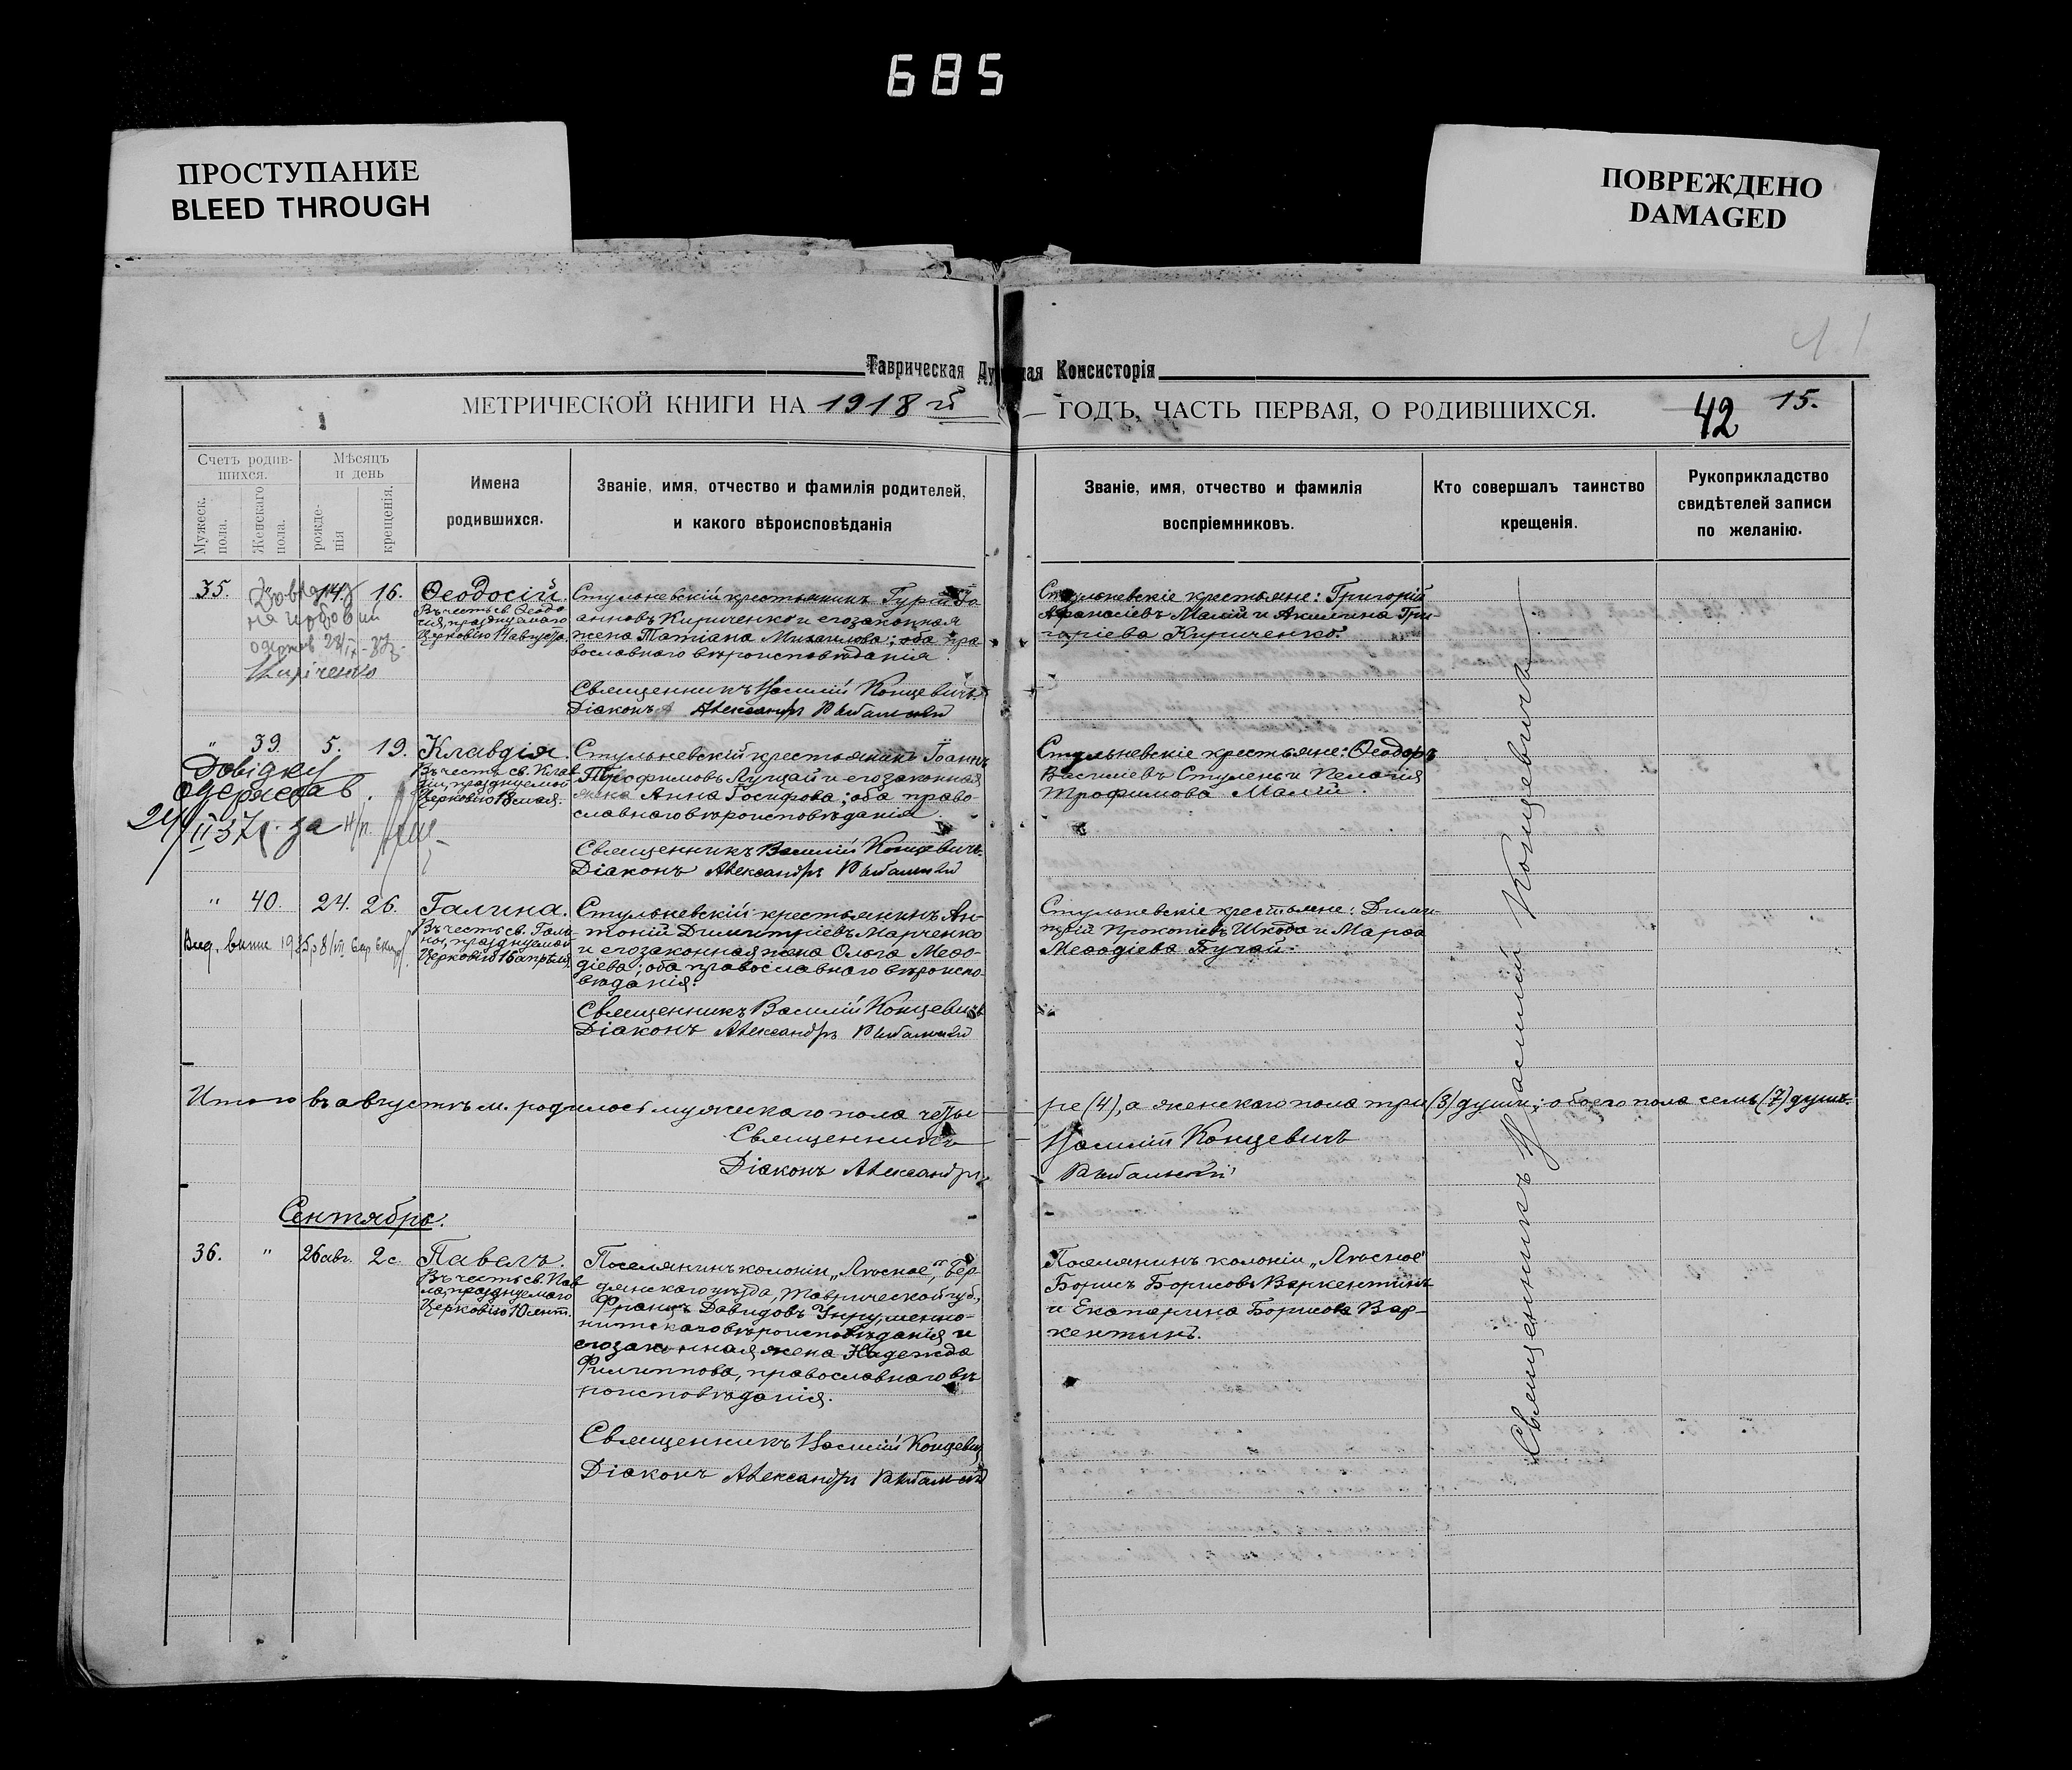 685
ПРОСТУПАНИЕ
BLEED THROUGH
ПОВРЕЖДЕНО
DAMAGED
Таврическая Ду ная Консисторія
МЕТРИЧЕСКОЙ КНИГИ НА 1918 й ГОДЪ, ЧАСТЬ ПЕРВАЯ, О РОДИВШИХСЯ.
42 15.
Счетъ родив-
шихся.
Мужеск. пола.
Женскаго пола.
Мѣсяцъ
и день
рожде-
нія
крещенія.
Имена
родившихся.
Званіе, имя, отчество и фамилія родителей,
и какого вѣроисповѣданія
Званіе, имя, отчество и фамилія
воспріемниковъ.
Кто совершалъ таинство
крещенія.
Рукоприкладство
свидѣтелей записи
по желанію.
35. 14. 16. Ѳеодосій.
Въ честь св. Ѳеодо
сія, празднуемаго
Церковію 11 августа.
Стульневскій крестьянинъ Гурій Іо
анновъ Кириченко и его законная
жена Татіана Михаилова; оба пра
вославнаго вѣроисповѣданія.
Священникъ Василій Концевичъ.
Діаконъ Александръ Рыбальскій
Стульневскіе крестьяне: Григорій
Аѳанасіевъ Малій и Акилина Гри-
горіева Кириченко.
Кириченко
" 39. 5. 19. Клавдія.
Въ честь св. Клав
діи, празднуемой
Церковію 18 мая.
Стульневскій крестьянинъ Іоаннъ
Трофимовъ Лущай и его законная
жена Анна Іосифова; оба право-
славнаго вѣроисповѣданія.
Священникъ Василій Концевичъ.
Діаконъ Александръ Рыбальскій
Стульневскіе крестьяне: Ѳеодоръ
Василіевъ Стулень и Пелагія
Трофимова Малій.
Довідку
одержав.
24/II 37 р. за
" 40. 24. 26. Галина.
Въ честь св. Гали
ны, празднуемой
Церковію 16 апрѣля.
Стульневскій крестьянинъ Ан-
тоній Димитріевъ Марченко
и его законная жена Ольга Меѳо-
діева; оба православнаго вѣроиспо-
вѣданія.
Священникъ Василій Концевичъ
Діаконъ Александръ Рыбальскій
Стульневскіе крестьяне: Дими-
трій Прокопіевъ Шкода и Марѳа
Меѳодіева Бугай.
Итого въ августѣ м. родилось мужескаго пола четы-ре (4), а женскаго пола три (3) души; обоего пола семь (7) душъ.
Священникъ Василій Концевичъ
Діаконъ Александръ Рыбальскій
Священникъ Василій Концевичъ
Сентябрь.
36. " 26 авг. 2 с. Павелъ.
Въ честь св. Пав
ла, празднуемаго
Церковію 10 сент.
Поселянинъ колоніи „Лѣсное", Бер
дянскаго уѣзда, Таврической губ.,
Францъ Давидовъ Унру, менно-
нитскаго вѣроисповѣданія и
его законная жена Надежда
Филиппова, православнаго вѣ
роисповѣданія.
Священникъ Василій Концевичъ
Діаконъ Александръ Рыбальскій
Поселянинъ колоніи „Лѣсное"
Борисъ Борисовъ Варкентинъ
и Екатерина Борисова Вар-
кентинъ.